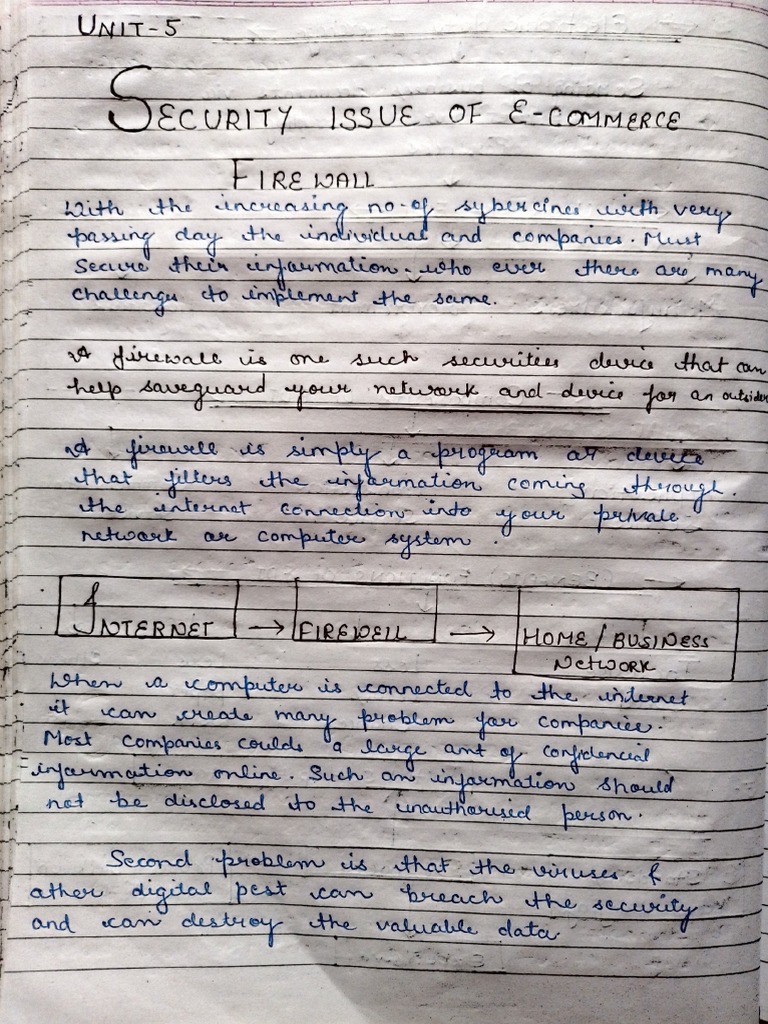 UNIT-5
SECURITY ISSUE OF E-COMMERCE
FIREWALL
With the increasing no. of sybercines with very
passing day the individual and companies. Must
secure their information. who ever there are many
challenges to implement the same.
A firewall is one such securities device that can
help saveguard your network and device for an outsider
A firewell is simply a program or device
that filters the information coming through.
the internet connection into your private
network or computer system.
INTERNET → FIREWELL → HOME / BUSINESS
NETWORK
When a computer is connected to the internet
it can create many problem for companies.
Most companies coulds a large amt of confidencial
information online. Such an information should
not be disclosed to the unauthorised person.
Second problem is that the viruses &
other digital pest can breach the security
and can destroy the valuable data